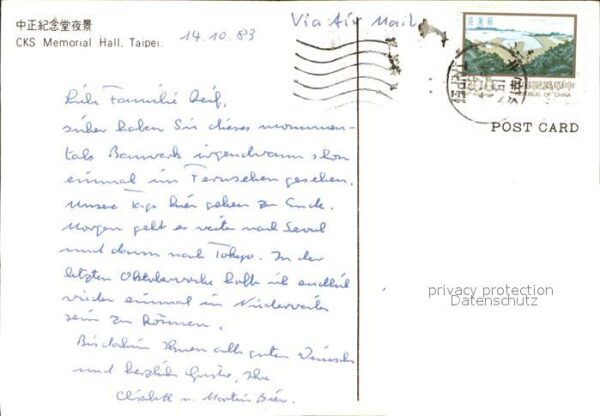 中正紀念堂夜景
CKS Memorial Hall, Taipei.
14.10.83
Via Air Mail
REPUBLIC OF CHINA
POST CARD
Liebe Familie Reif,
sicher haben Sie dieses monumen-
tale Bauwerk irgendwann schon
einmal im Fernsehen gesehen.
Unsere Tage hier gehen zu Ende.
Morgen geht es weiter nach Seoul
und dann nach Tokyo. In der
letzten Oktoberwoche hoffe ich endlich
wieder einmal in Niederweiler
sein zu können.
Bis dahin Ihnen alle guten Wünsche
und herzliche Grüße, Ihre
Elisabeth u. Martin
privacy protection
Datenschutz